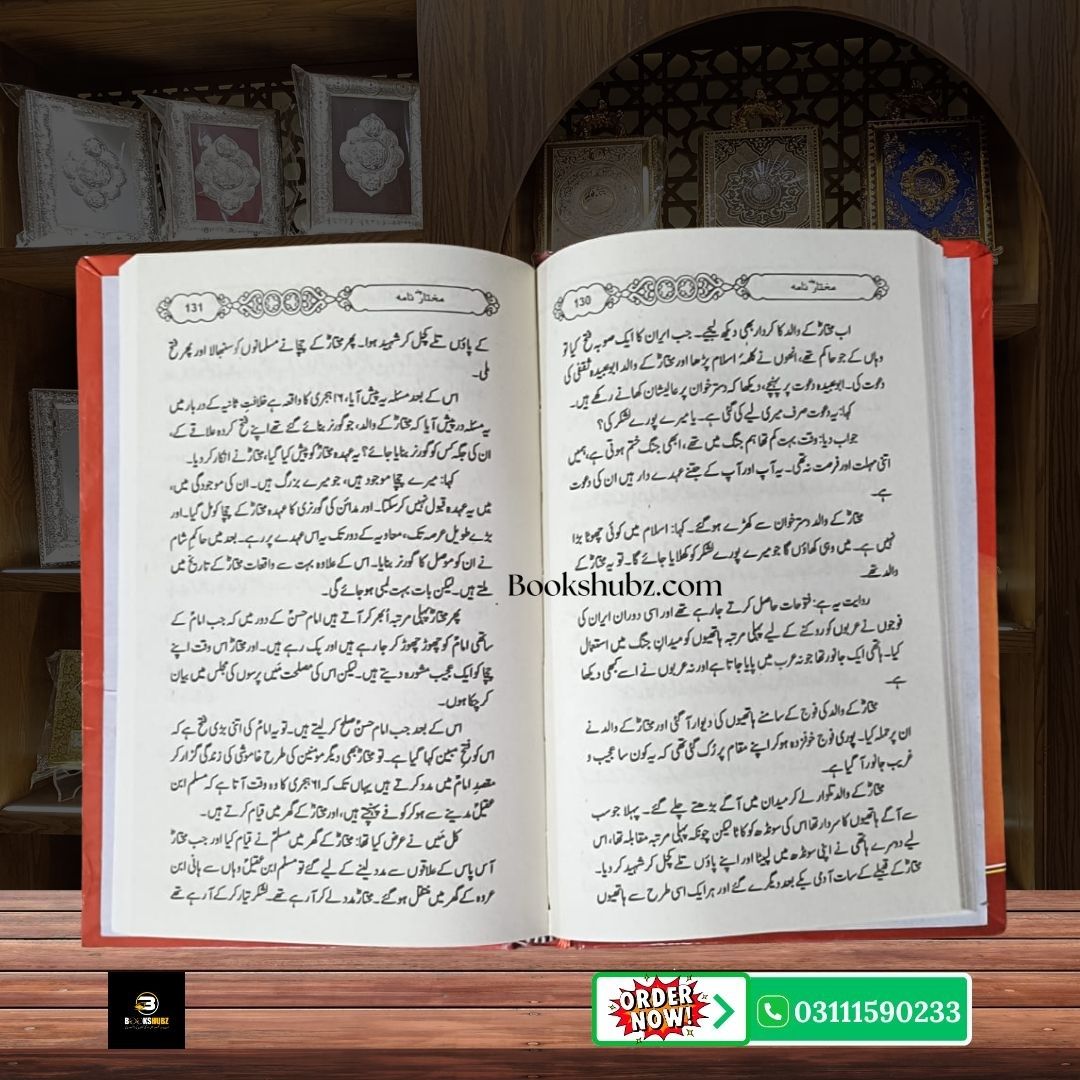 مختار نامہ
130
اب مختارؒ کے والد کا کردار بھی دیکھ لیجیے۔ جب ایران کا ایک صوبہ فتح کیا تو
وہاں کے جو حاکم تھے، انھوں نے کلمۂ اسلام پڑھا اور مختارؒ کے والد ابوعبیدہ ثقفی کی
دعوت کی۔ ابوعبیدہ دعوت پر پہنچے، دیکھا کہ دسترخوان پر عالیشان کھانے رکھے ہیں۔
کہا: یہ دعوت صرف میری لیے کی گئی ہے۔ یا میرے پورے لشکر کی؟
جواب دیا: وقت بہت کم تھا ہم جنگ میں تھے، ابھی جنگ ختم ہوتی ہے، ہمیں
اتنی مہلت اور فرصت نہ تھی۔ یہ آپ اور آپ کے جتنے عہدے دار ہیں ان کی دعوت
ہے۔
مختارؒ کے والد دسترخوان سے کھڑے ہو گئے۔ کہا: اسلام میں کوئی چھوٹا بڑا
نہیں ہے۔ میں وہی کھاؤں گا جو میرے پورے لشکر کو کھلایا جائے گا۔ تو یہ مختارؒ کے
والد تھے۔
روایت یہ ہے: فتوحات حاصل کرتے جا رہے تھے اور اسی دوران ایران کی
فوجوں نے عربوں کو روکنے کے لیے پہلی مرتبہ ہاتھیوں کو میدانِ جنگ میں استعمال
کیا۔ ہاتھی ایک جانور تھا جو نہ عرب میں پایا جاتا ہے اور نہ عربوں نے اسے کبھی دیکھا
ہے۔
مختارؒ کے والد کی فوج کے سامنے ہاتھیوں کی دیوار آ گئی اور مختارؒ کے والد نے
ان پر حملہ کیا۔ پوری فوج خوفزدہ ہو کر اپنے مقام پر رُک گئی تھی کہ یہ کون سا عجیب و
غریب جانور آ گیا ہے۔
مختارؒ کے والد تلوار لے کر میدان میں آگے بڑھتے چلے گئے۔ پہلا جو سب
سے آگے ہاتھیوں کا سردار تھا اس کی سونڈھ کو کاٹا لیکن چونکہ پہلی مرتبہ مقابلہ تھا، اس
لیے دوسرے ہاتھی نے اپنی سونڈھ میں لپیٹا اور اپنے پاؤں تلے کچل کر شہید کر دیا۔
مختارؒ کے قبیلے کے سات آدمی یکے بعد دیگرے گئے اور ہر ایک اسی طرح سے ہاتھیوں
مختار نامہ
131
کے پاؤں تلے کچل کر شہید ہوا۔ پھر مختارؒ کے چچا نے مسلمانوں کو سنبھالا اور پھر فتح
ملی۔
اس کے بعد مسئلہ یہ پیش آیا، ۱۶ ہجری کا واقعہ ہے خلافتِ ثانیہ کے دربار میں
یہ مسئلہ درپیش آیا کہ مختارؒ کے والد، جو گورنر بنائے گئے تھے اپنے فتح کردہ علاقے کے،
ان کی جگہ کس کو گورنر بنایا جائے؟ یہ عہدہ مختارؒ کو پیش کیا گیا، مختارؒ نے انکار کر دیا۔
کہا: میرے چچا موجود ہیں، جو میرے بزرگ ہیں۔ ان کی موجودگی میں،
میں یہ عہدہ قبول نہیں کر سکتا۔ اور مدائن کی گورنری کا عہدہ مختارؒ کے چچا کو مل گیا۔ اور
بڑے طویل عرصہ تک، معاویہ کے دور تک یہ اس عہدے پر رہے۔ بعد میں حاکمِ شام
نے ان کو موصل کا گورنر بنایا۔ اس کے علاوہ بہت سے واقعات مختارؒ کے تاریخ میں
ملتے ہیں۔ لیکن بات بہت لمبی ہو جائے گی۔
پھر مختارؒ پہلی مرتبہ اُبھر کر آتے ہیں امام حسنؑ کے دور میں کہ جب امامؑ کے
ساتھی امامؑ کو چھوڑ چھوڑ کر جا رہے ہیں اور بِک رہے ہیں۔ اور مختارؒ اس وقت اپنے
چچا کو ایک عجیب مشورہ دیتے ہیں۔ لیکن اس کی مصلحت میں پرسوں کی مجلس میں بیان
کر چکا ہوں۔
اس کے بعد جب امام حسنؑ صلح کر لیتے ہیں۔ تو یہ امامؑ کی اتنی بڑی فتح ہے کہ
اس کو فتح مبین کہا گیا ہے۔ تو مختارؒ بھی دیگر مومنین کی طرح خاموشی کی زندگی گزار کر
مقصدِ امامؑ میں مدد کرتے ہیں یہاں تک کہ ۶۱ ہجری کا وہ وقت آتا ہے کہ مسلم ابن
عقیلؑ مدینے سے ہو کر کوفے پہنچتے ہیں، اور مختارؒ کے گھر میں قیام کرتے ہیں۔
کل مَیں نے عرض کیا تھا: مختارؒ کے گھر میں مسلمؑ نے قیام کیا اور جب مختارؒ
آس پاس کے علاقوں سے مدد لینے کے لیے گئے تو مسلم ابن عقیلؑ وہاں سے ہانی ابن
عروہ کے گھر میں منتقل ہو گئے۔ مختارؒ مدد لے کر آ رہے تھے۔ لشکر تیار کر کے آ رہے تھے
Bookshubz.com
BOOKSHUBZ
ORDER NOW!
03111590233